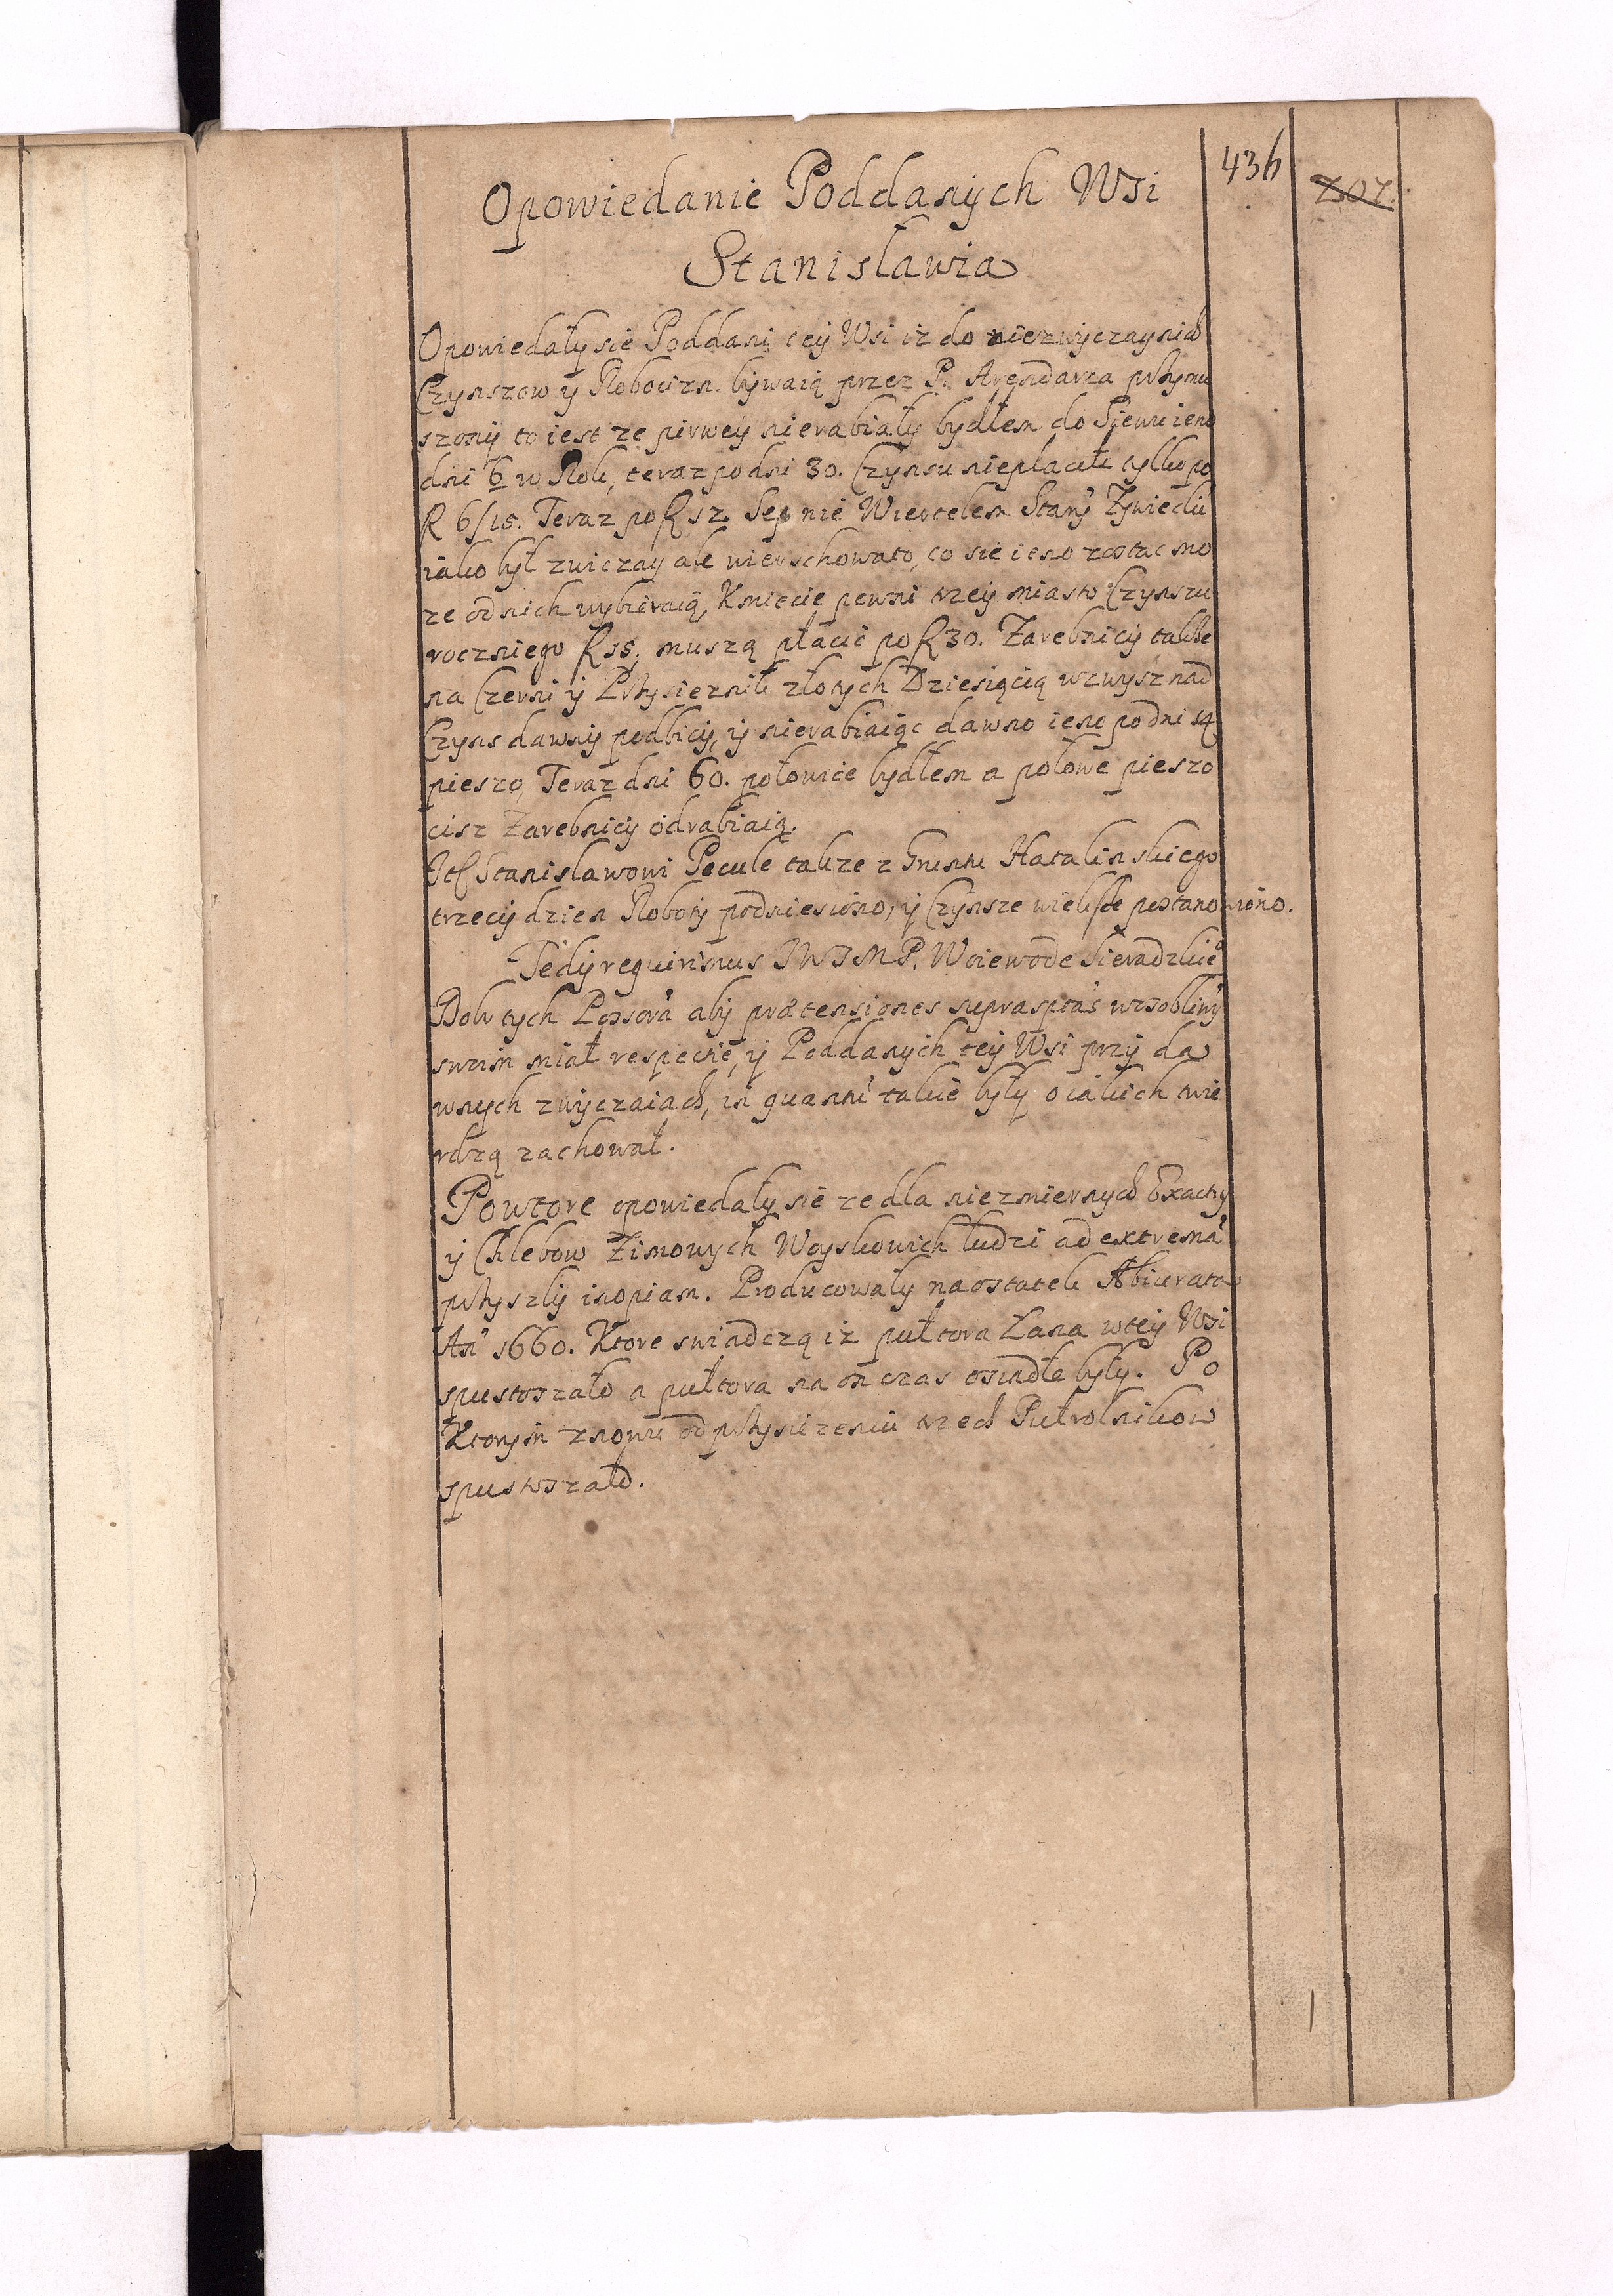 436
207.
Opowiedanie Poddanych Wsi
Stanisławia
Opowiedały sie Poddani tey Wsi iż do niezwyczaynich
Czynszow y Robocizn. bywaią przez P. Arendarza przymu
szony to iest ze pirwey nierabiały bydłem do Siewu ieno
dni 6 w Rok, teraz po dni 30. Czynsu niepłacili tylko po
R 6/15. Teraz po R 12. Sep nie Wiertelem Stary Zywiecki
iako był zwiczay ale wierschowato, co sie ieno zostac mo
ze od nich wybieraią, Kmiecie pewni trzey miasto Czynszu
roczniego R 15. muszą płacic po R 30. Zarebnicy takze
na Czerni y Przysieznik złotych Dziesiącią wzwysz nad
Czyns dawny podbicy, y nierabiaiąc dawno ieno po dni 14
pieszo, Teraz dni 60. połowice bydłem a połowe pieszo
cisz Zarebnicy odrabiaią.
Stanisławowi Pecule takze z Gruntu Hatalinskiego
trzecy dzien Roboty podniesiono, y Czynsze wielkie postanowiono.
Tedy requirimus JWJMP. Woiewode Sieradzkie°
Dobr tych Possora aby prætensiones suprasptas wosobliwy
swoim miał respecie, y Poddanych tey Wsi przy da
wnych zwyczaiach, in quantu takie były o iakich twie
rdzą zachował.
Powtore opowiedały sie ze dla niezmiernych Exacty
y Chlebow Zimowych Woyskowich ludzi ad extrema
przyszly inopiam. Producowały na ostatek Abiurata
An 1660. Ktore swiadczą iz pułtora Łana wtey Wsi
spustoszało a pułtora na on czas osiadłe były. Po
Ktorym znowu od przysiezeniu trzech Pułrolnikow
spustoszało.